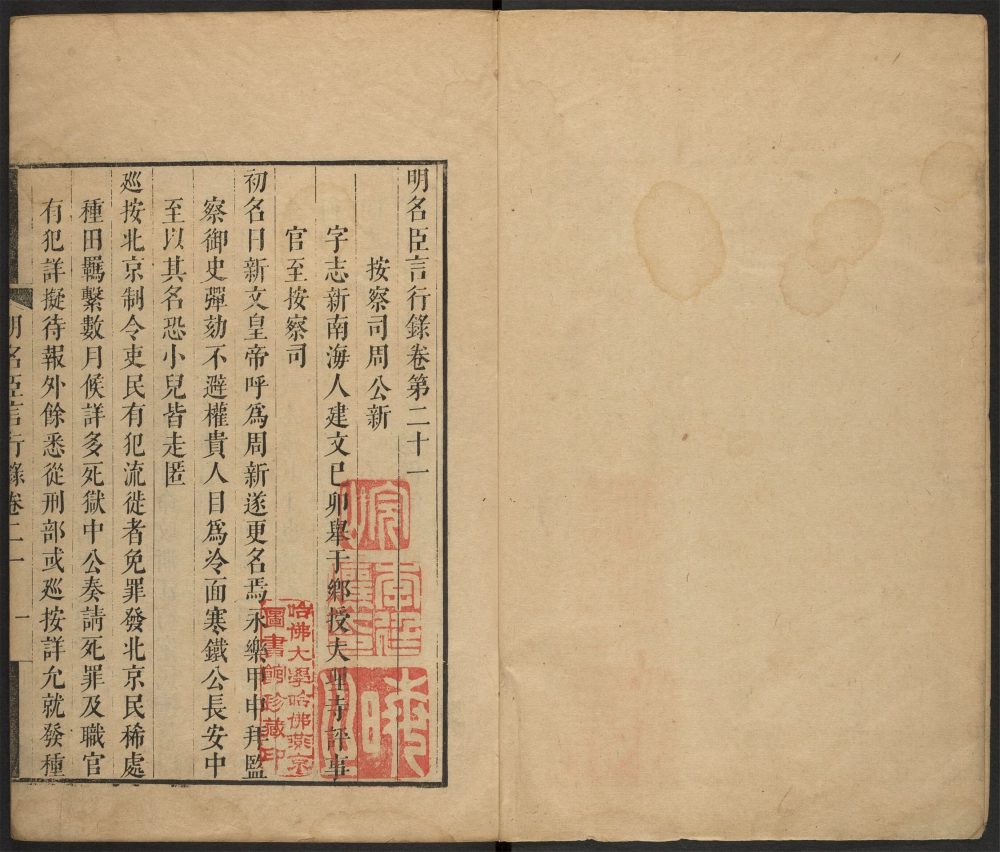 明名臣言行錄卷第二十一
按察司周公新
字志新南海人建文己卯舉于鄉授大理寺評事
官至按察司
初名日新文皇帝呼爲周新遂更名焉永樂甲申拜監
察御史彈劾不避權貴人目爲冷面寒鐵公長安中
至以其名恐小兒皆走匿
巡按北京制令吏民有犯流徙者免罪發北京民稀處
種田羈繫數月候詳多死獄中公奏請死罪及職官
有犯詳擬待報外餘悉從刑部或巡按詳允就發種
明名臣言行錄卷二一
一
哈佛大學哈佛燕京
圖書館珍藏印